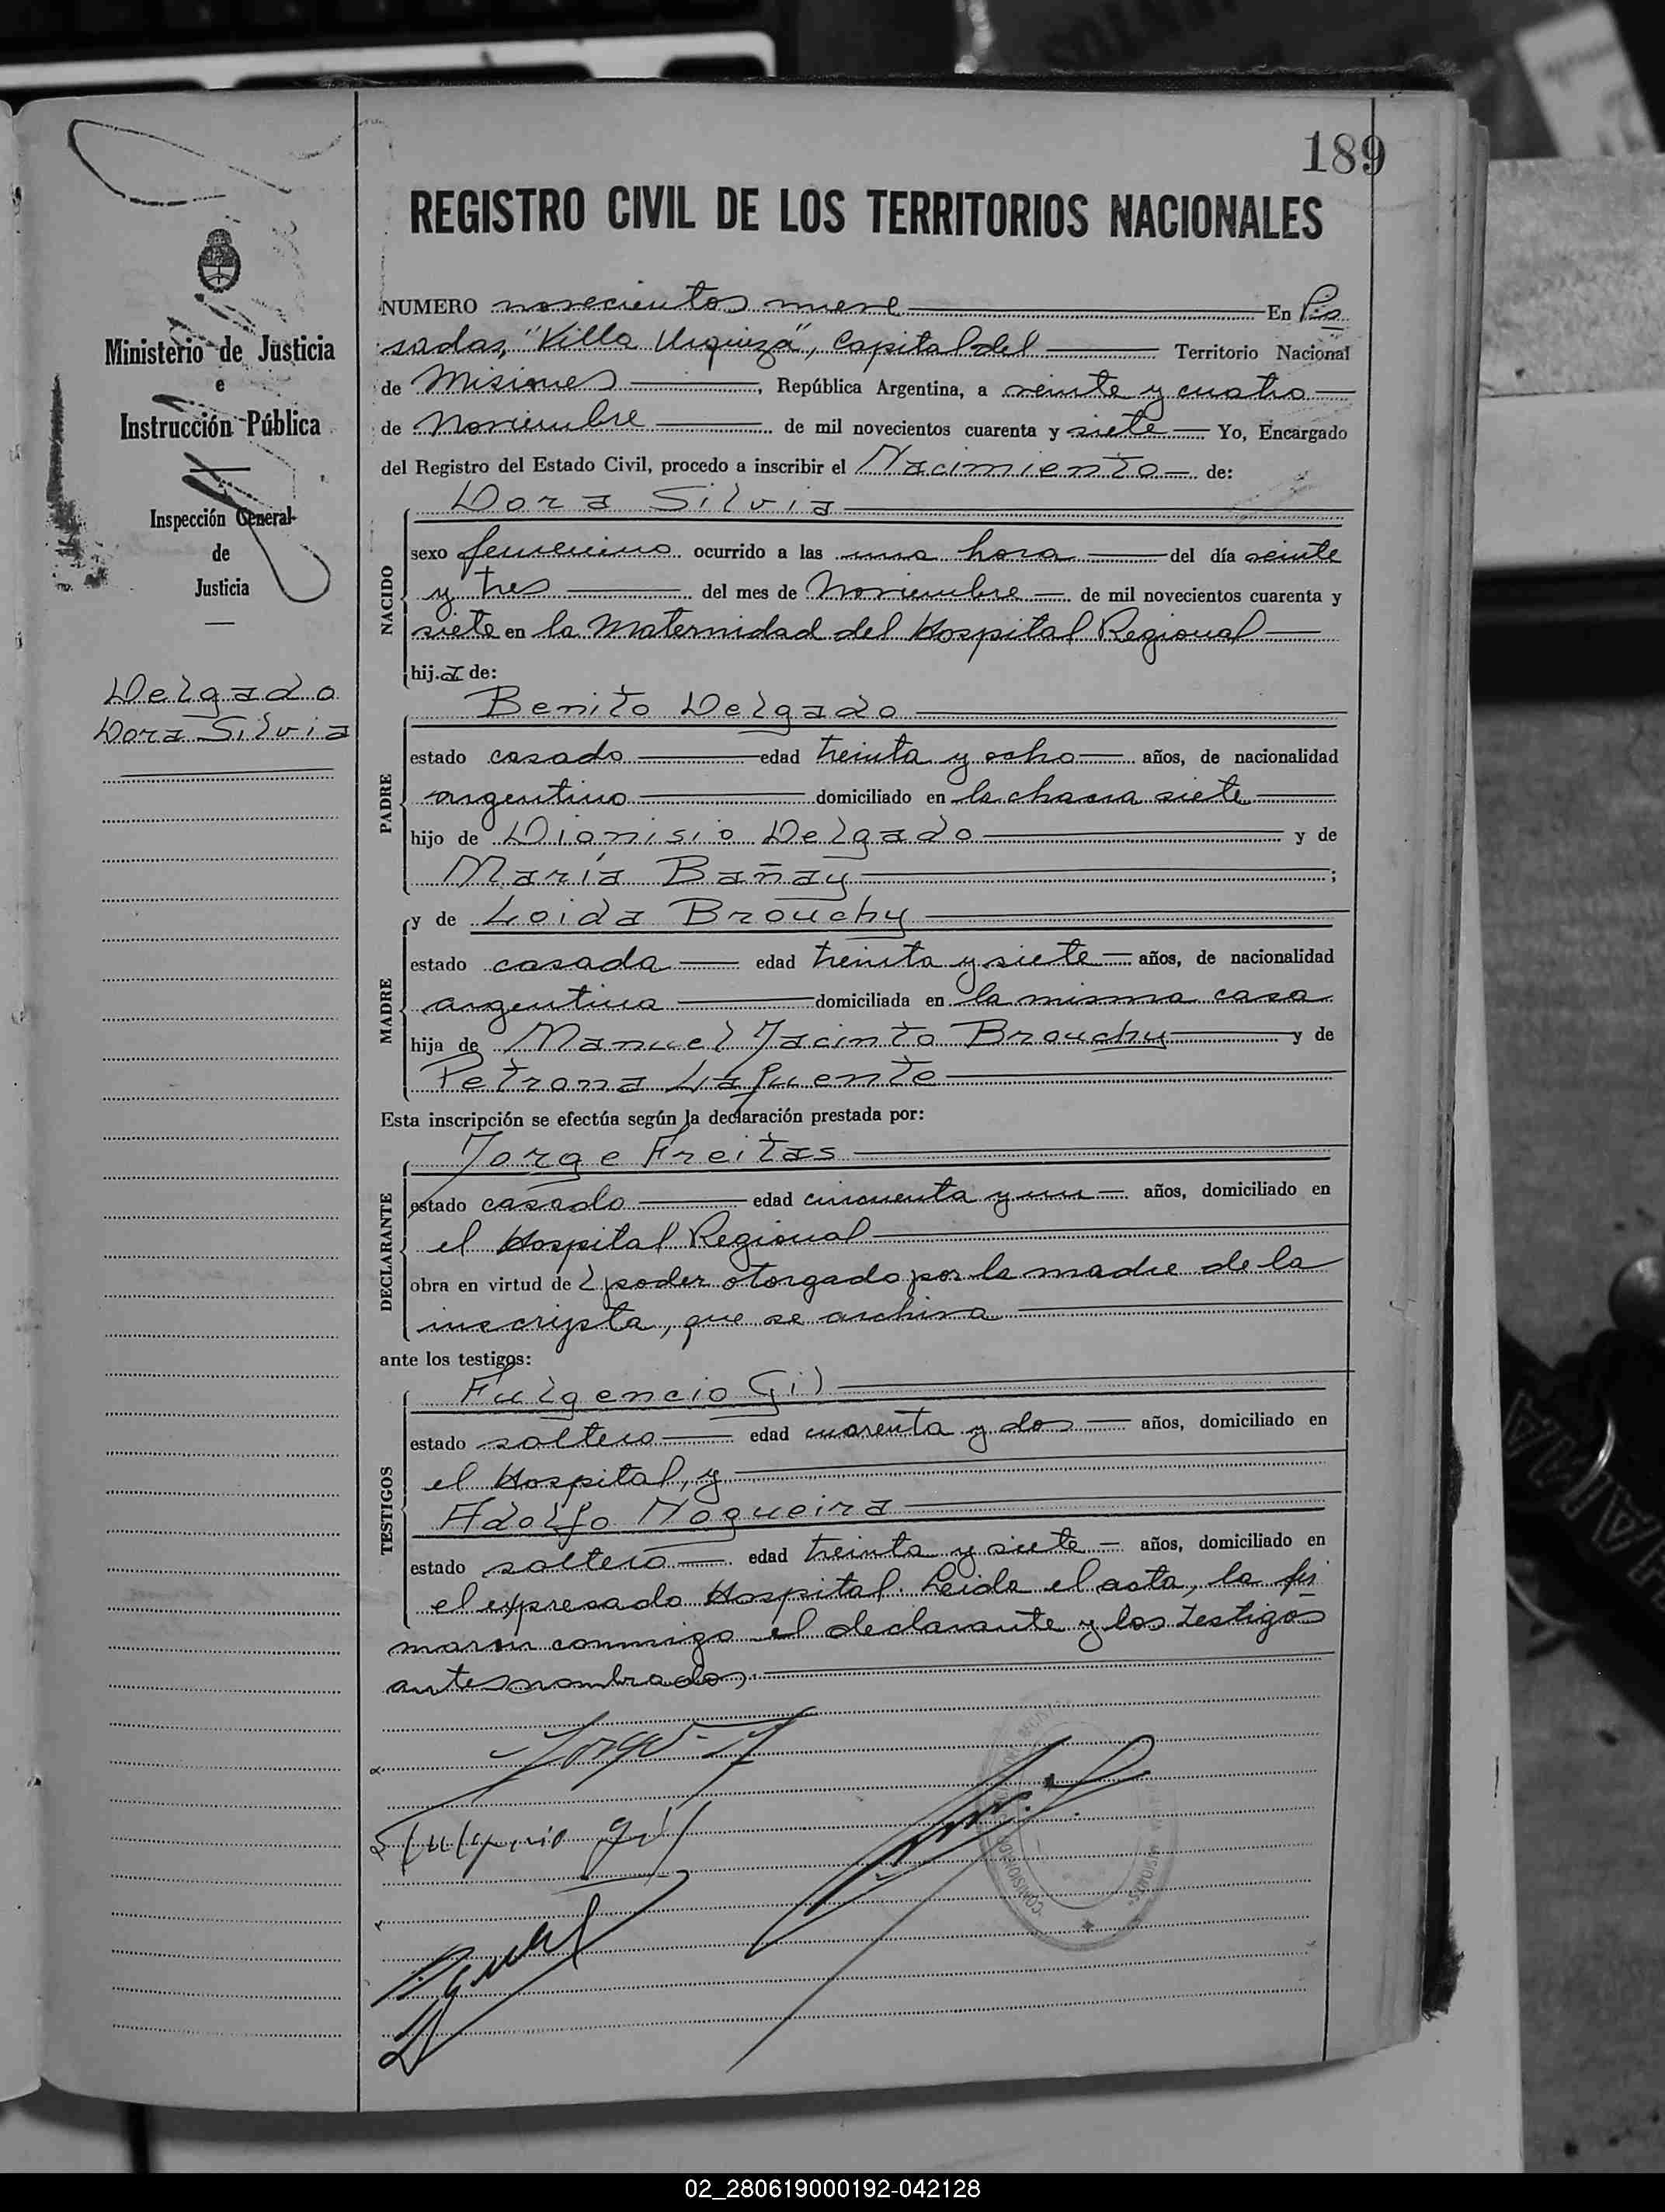 189
REGISTRO CIVIL DE LOS TERRITORIOS NACIONALES
Ministerio de Justicia
e
Instrucción Pública
Inspección General
de
Justicia
Delgado
Dora Silvia
NUMERO novecientos nueve En Po
sadas, "Villa Urquiza", Capital del Territorio Nacional
de Misiones, República Argentina, a veinte y cuatro
de Noviembre de mil novecientos cuarenta y siete Yo, Encargado
del Registro del Estado Civil, procedo a inscribir el Nacimiento de:
NACIDO
Dora Silvia
sexo femenino ocurrido a las una hora del día veinte
y tres del mes de Noviembre de mil novecientos cuarenta y
siete en la Maternidad del Hospital Regional
hij.a de:
PADRE
Benito Delgado
estado casado edad treinta y ocho años, de nacionalidad
argentino domiciliado en la chacra siete
hijo de Dionisio Delgado y de
María Bañay;
MADRE
y de Loida Brouchy
estado casada edad treinta y siete años, de nacionalidad
argentina domiciliada en la misma casa
hija de Manuel Jacinto Brouchy y de
Petrona Lapuente
Esta inscripción se efectúa según la declaración prestada por:
DECLARANTE
Jorge Freitas
estado casado edad cincuenta y un años, domiciliado en
el Hospital Regional
obra en virtud de l poder otorgado por la madre de la
inscripta, que se archiva
ante los testigos:
TESTIGOS
Fulgencio Gil
estado soltero edad cuarenta y dos años, domiciliado en
el Hospital, y
Adolfo Nogueira
estado soltero edad treinta y siete años, domiciliado en
el expresado Hospital. Leida el acta, la fir
maron conmigo el declarante y los testigos
antes nombrados.
02_280619000192-042128